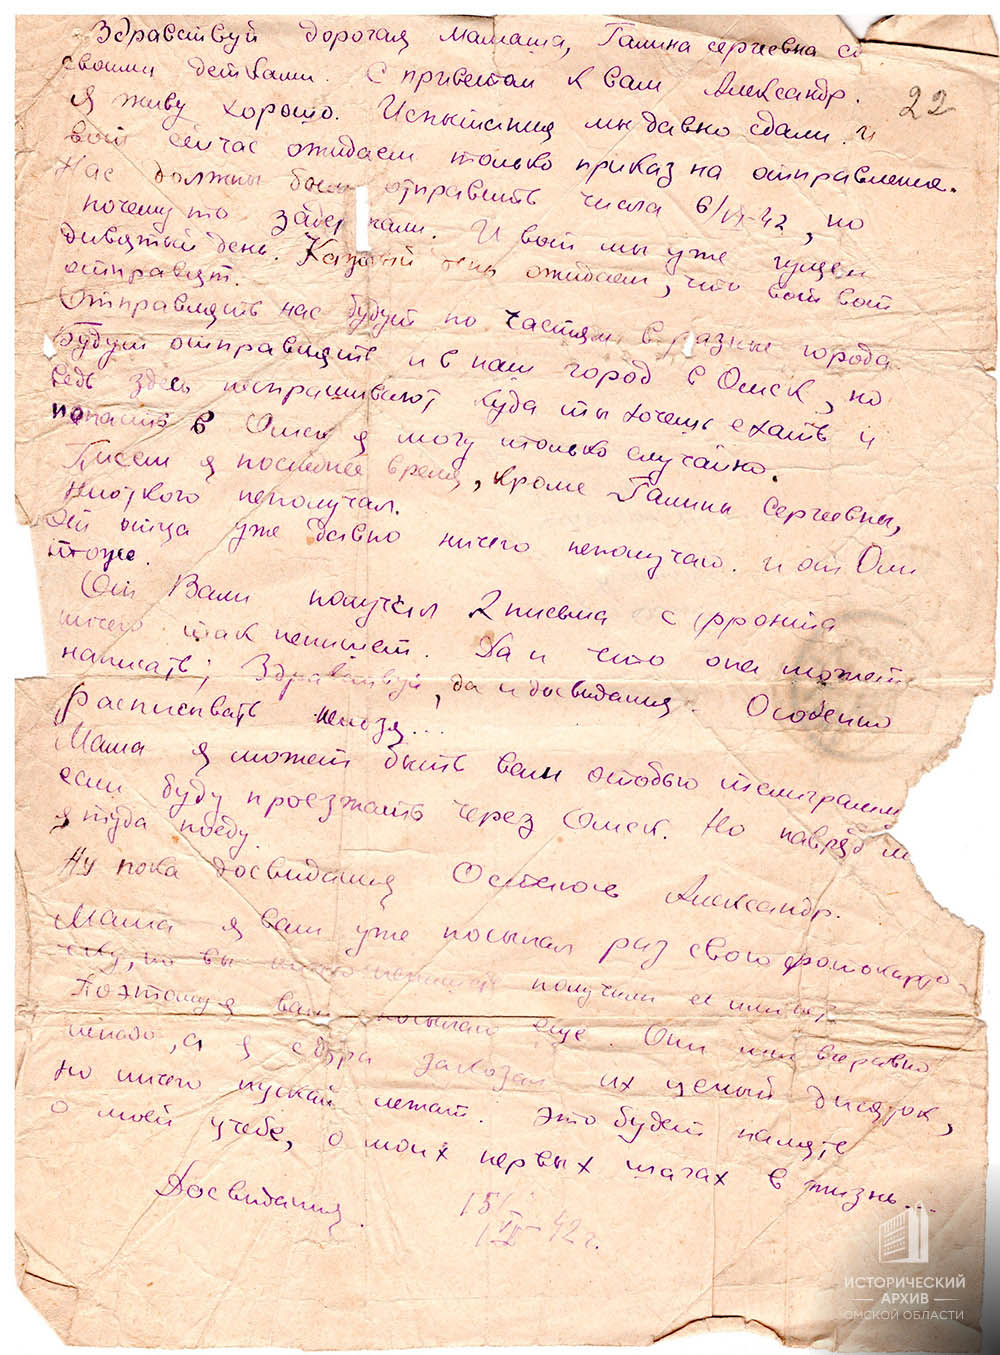 Здравствуй дорогая мамаша, Галина сергеевна со
своими детками. С приветом к вам Александр.
22
Я живу хорошо. Испытания мы давно сдали. и
вот сейчас ожидаем только приказ на отправление.
Нас должны были отправить числа 6/VI-42, но
почему то задержали. И вот мы уже гуляем
дивятый день. Каждый день ожидаем, что вот вот
отправят.
Отправлять нас будут по частям в разные города
Будут отправлять и в наш город в Омск, но
ведь здесь неспрашивают куда ты хочешь ехать и
попасть в Омск я могу только случайно.
Писем я последнее время, кроме Галины Сергеевны,
ниоткого неполучал.
От отца уже давно ничего неполучаю. и от Оли
тоже.
От Вали получил 2 письма с фронта
ничего так непишет. Да и что она может
написать; Здравствуй, да и досвидания. Особенно
расписывать нельзя...
Мама я может быть вам отобью телиграмму
если буду проезжать через Омск. Но наврядли
я туда поеду.
Ну пока досвидания Остаюсь Александр.
Мама я вам уже посылал раз свою фотокарто-
чку, но вы получили ее или нет,
Поэтому я вам посылаю еще. Они мне всеравно
ненадо, а я сдура заказал их целый дисяток,
но ничего пускай лежат. Это будет память
о моей учебе, о моих первых шагах в жизнь...
Досвидания.
15/VI-42 г.
ИСТОРИЧЕСКИЙ
АРХИВ
ОМСКОЙ ОБЛАСТИ